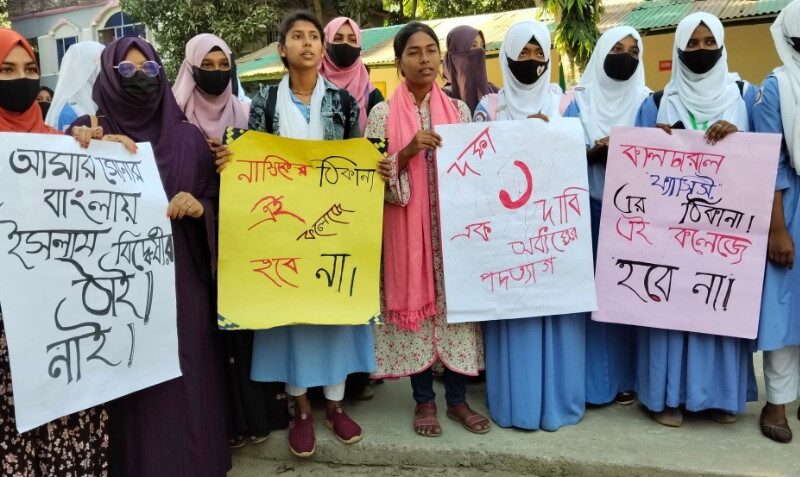 আমার সোনার
বাংলায়
ইসলাম বিদ্বেষীর
ঠাই।
নাই।
নাস্তিকের ঠিকানা
এই
কলেজে
হবে না।
দফা
১
এক দাবি
অধ্যক্ষের
পদত্যাগ
কালচারাল
ফ্যাসিস্ট
এর ঠিকানা।
এই কলেজে
হবে না।